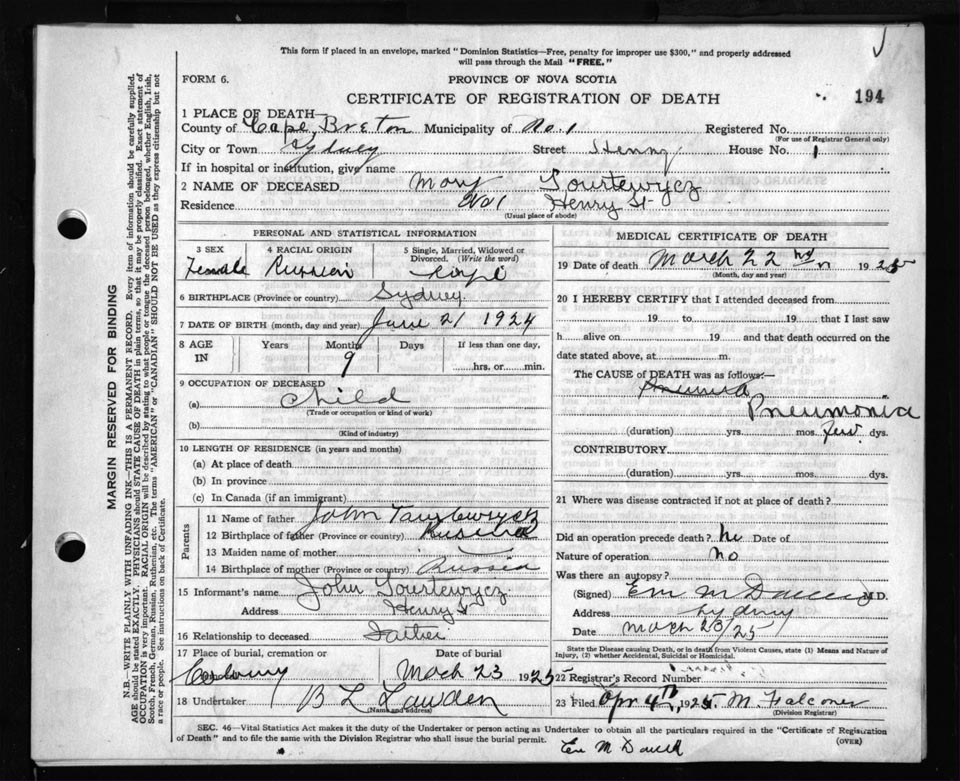 This form if placed in an envelope, marked "Dominion Statistics—Free, penalty for improper use $300," and properly addressed
will pass through the Mail "FREE."
FORM 6.
PROVINCE OF NOVA SCOTIA
CERTIFICATE OF REGISTRATION OF DEATH
194
1 PLACE OF DEATH—
County of Cape Breton Municipality of No. 1 Registered No.
(For use of Registrar General only)
City or Town Sydney Street Henry House No. 1
If in hospital or institution, give name
2 NAME OF DECEASED Mary Tourtewycz
Residence No 1 Henry St
(Usual place of abode)
PERSONAL AND STATISTICAL INFORMATION
3 SEX 4 RACIAL ORIGIN 5 Single, Married, Widowed or
Divorced. (Write the word)
Female Russian
6 BIRTHPLACE (Province or country) Sydney
7 DATE OF BIRTH (month, day and year) June 21 1924
8 AGE Years Months Days If less than one day,
IN 9 hrs. or min.
9 OCCUPATION OF DECEASED
(a) Child
(Trade or occupation or kind of work)
(b)
(Kind of industry)
10 LENGTH OF RESIDENCE (in years and months)
(a) At place of death
(b) In province
(c) In Canada (if an immigrant)
Parents
11 Name of father John
12 Birthplace of father (Province or country) Russia
13 Maiden name of mother
14 Birthplace of mother (Province or country) Russia
15 Informant's name John Tourtewycz
Address Henry St
16 Relationship to deceased Father
17 Place of burial, cremation or Date of burial
March 23 1925
18 Undertaker B L Lawden
(Name and address)
MEDICAL CERTIFICATE OF DEATH
19 Date of death March 22 1925
(Month, day and year)
20 I HEREBY CERTIFY that I attended deceased from
19 to 19 that I last saw
h alive on 19 and that death occurred on the
date stated above, at m.
The CAUSE of DEATH was as follows:—
Pneumonia
(duration) yrs. mos. few dys.
CONTRIBUTORY
(duration) yrs. mos. dys.
21 Where was disease contracted if not at place of death?
Did an operation precede death? no Date of
Nature of operation no
Was there an autopsy?
(Signed) M.D.
Address Sydney
Date March 23/25
State the Disease causing Death, or in death from Violent Causes, state (1) Means and Nature of
Injury, (2) whether Accidental, Suicidal or Homicidal.
22 Registrar's Record Number
23 Filed Apr 4th 1925. M. Falconer
(Division Registrar)
SEC. 46—Vital Statistics Act makes it the duty of the Undertaker or person acting as Undertaker to obtain all the particulars required in the "Certificate of Registration
of Death" and to file the same with the Division Registrar who shall issue the burial permit.
(OVER)
MARGIN RESERVED FOR BINDING
N.B.—WRITE PLAINLY WITH UNFADING INK—THIS IS A PERMANENT RECORD. Every item of information should be carefully supplied.
AGE should be stated EXACTLY. PHYSICIANS should STATE CAUSE OF DEATH in plain terms, so that it may be properly classified. Exact statement of
OCCUPATION is very important. RACIAL ORIGIN will be described by stating to what people or tongue the deceased person belonged, whether English, Irish,
Scotch, French, German, Russian, Ruthenian, etc. The terms "AMERICAN" or "CANADIAN" SHOULD NOT BE USED as they express citizenship but not
a race or people. See instructions on back of Certificate.